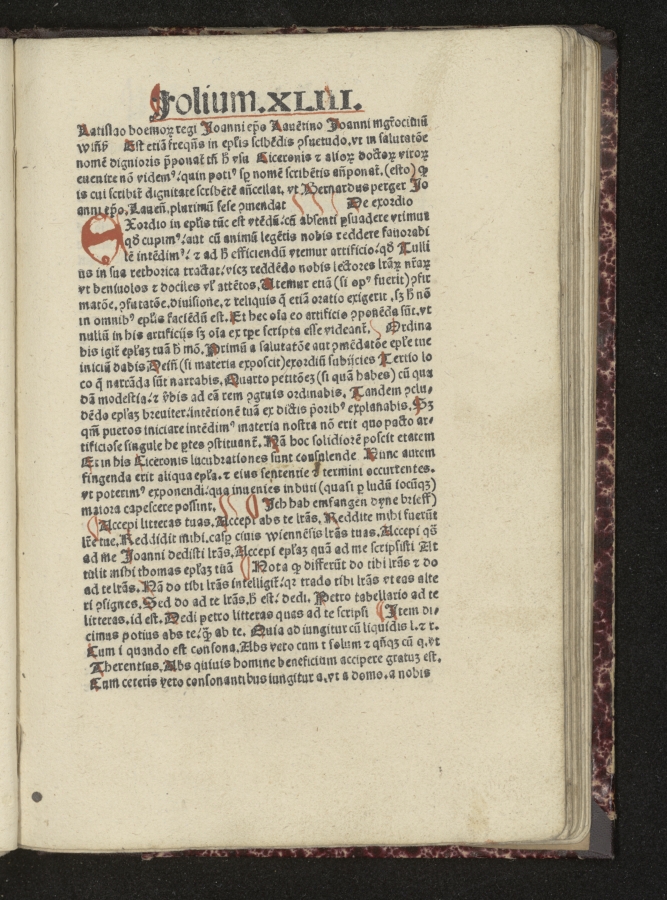 Folium.XLIIII.
Ratislao boemoꝝ regi Joanni ep̄o Lauētino Joanni mgr̄ociuiū
Est etiā freq̄ns in ep̄lis scibēdis ꝯsuetudo.vt in salutatōe
nomē dignioris p̄ponat̄ tn̄ h̄ vsu Ciceronis ⁊ alioꝝ doctoꝝ viroꝝ
euenire nō videmꝰ.quin potiꝰ sꝑ nomē scribētis an̄ponat̄.(esto) ꝙ
is cui scribit̄ dignitate scribētē ancellat.vt Bernardus perger Jo
anni ep̄o.Lauen̄.plurimū sese ꝯmendat De exordio
EXordio in ep̄lis tūc est vtēdū.cū absenti ꝑsuadere vtimur
qd̄ cupimꝰ.aut cū animū legētis nobis reddere fauorabi
lē intēdimꝰ.⁊ ad h̄ efficiendū vtemur artificio.qd̄ Tulli
us in sua rethorica tractat.vicꝫ reddēdo nobis lectores lr̄aꝝ nr̄aꝝ
vt beniuolos ⁊ dociles vl̓ attētos.Vtemur etiā (si opꝰ fuerit) ꝯfir
matōe.ꝯfutatōe.diuisione.⁊ reliquis q̄ etiā oratio exigerit.sꝫ h̄ nō
in omnibꝰ ep̄lis faciēdū est.Et hec oīa eo artificio ꝯponēda sūt.vt
nullū in his artificijs sꝫ oīa ex tꝑe scripta esse videant̄. Ordina
bis igit̄ ep̄laꝫ tuā h̄ mō.Primū a salutatōe aut ꝯmēdatōe ep̄le tue
iniciū dabis.Dein̄ (si materia exposcit) exordiū subijcies Tertio lo
co q̄ narrāda sūt narrabis.Quarto petitōeꝫ (si quā habes) cū qua
dā modestia.⁊ v̄bis ad eā rem ꝯgruis ordinabis. Tandem ꝯclu-
dēdo ep̄laꝫ breuiter.intētionē tuā ex dictis p̄oribꝰ explanabis.Sꝫ
qm̄ pueros iniciare intēdimꝰ materia nostra nō erit quo pacto ar-
tificiose singule hе ꝑtes ꝯstituant̄.Nā hoc solidiorē poscit etatem
Et in his Ciceronis lucubrationes sunt consulende Nunc autem
fingenda erit aliqua ep̄la.⁊ eius sententie ⁊ termini occurrentes.
vt poterimꝰ exponendi.qua inuenies inbuti (quasi ꝑ ludū iocūqꝫ)
maiora capescere possint. Jch hab emfangen dyne brieff
Accepi litteras tuas.Accepi abs te lr̄as.Reddite mihi fuerūt
lr̄e tue.Reddidit mihi.caspar ciuis wiennēsis lr̄as tuas.Accepi qs̄
ad me Joanni dedisti lr̄as.Accepi ep̄laꝫ quā ad me scripsisti At
tulit mihi thomas ep̄laꝫ tuā Nota ꝙ differūt do tibi lr̄as ⁊ do
ad te lr̄as.Nā do tibi lr̄as intelligit̄.qꝛ trado tibi lr̄as vt eas alte
ri ꝯsignes.Sed do ad te lr̄as.h̄ est. dedi. Petro tabellario ad te
litteras.id est.Dedi petro litteras quas ad te scripsi Item di-
cimus potius abs te.ꝗ̄ ab te. Quia ad iungitur cū liquidis l.⁊ r.
Cum i quando est consona.Abs vero cum t solum ⁊ qn̄qꝫ cū q.vt
Therentius.Abs quiuis homine beneficium accipere gratuꝫ est.
Cum ceteris vero consonantibus iungitur a.vt a domo.a nobis